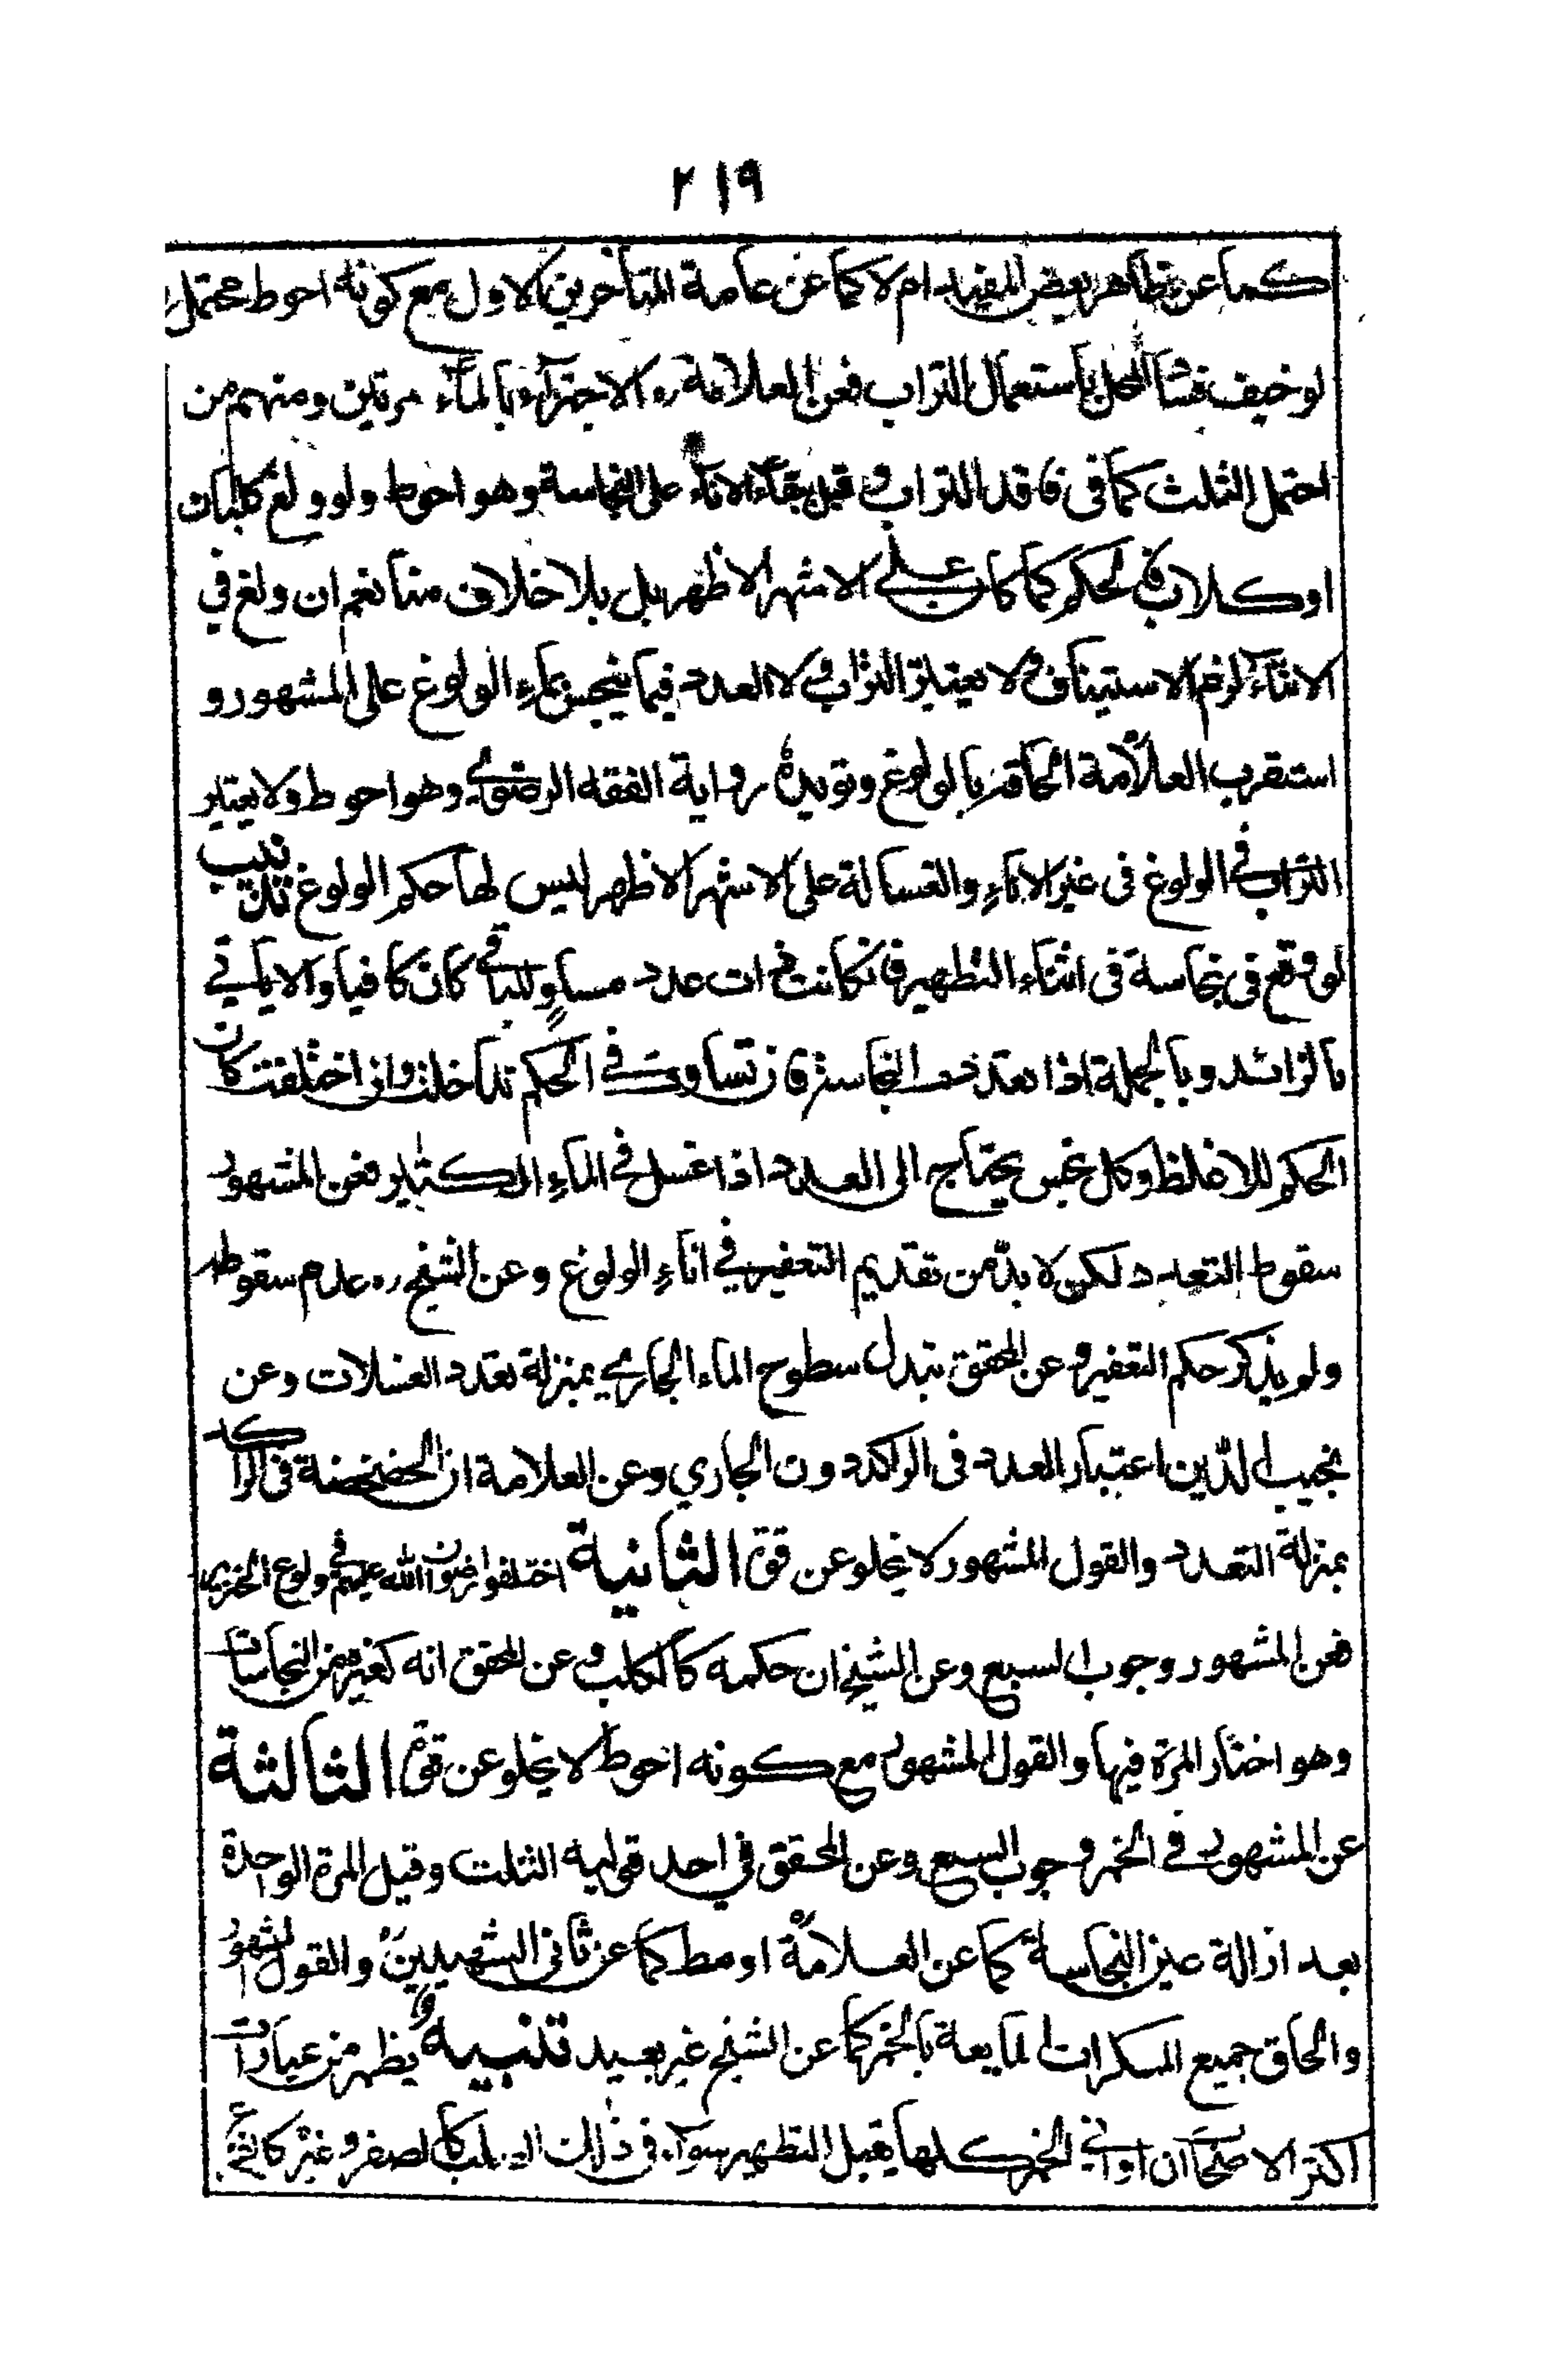 ٢١٩
كما عن ظاهر بعض المفيد ام لا كما عن عامة المتأخرين الاول مع كونه احوط محتمل
لو خيف فساد المحل باستعمال التراب فعن العلامة ره الاجتزاء بالماء مرتين ومنهم من
احتمل الثلث كما في فاقد التراب و قيل ببقاء الاناء على النجاسة وهو احوط ولو ولغ كلبان
او كلاب فالحكم كما كان على الاشهر الاظهر بل بلا خلاف منا نعم ان ولغ في
الاثناء لزم الاستيناف ولا يعتبر التراب ولا العدد فيما ينجس بماء الولوغ على المشهور و
استقرب العلامة الحاقه بالولوغ وتويده رواية الفقه الرضوي وهو احوط ولا يعتبر
التراب في الولوغ في غير الاناء والغسالة على الاشهر الاظهر ليس لها حكم الولوغ تذنيب
لو وقع في نجاسة في اثناء التطهير فان كانت ذات عدد مساو للباقي كان كافيا والا ياتي
بالزائد وبالجملة اذا تعددت النجاسة فان تساوت في الحكم تداخلت وان اختلفت كان
الحكم للاغلظ وكل نجس يحتاج الى العدد اذا غسل في الماء الكثير فعن المشهور
سقوط التعدد لكن لا بد من تقديم التعفير في اناء الولوغ وعن الشيخ ره عدم سقوطه
ولم يذكر حكم التعفير و عن المحقق تبدل سطوح الماء الجاري بمنزلة تعدد الغسلات وعن
نجيب الدين اعتبار العدد في الراكد دون الجاري وعن العلامة ان الخضخضة في الراكد
بمنزلة التعدد والقول المشهور لا يخلو عن قوة الثانية اختلفوا رضوان الله عليهم في ولوغ الخنزير
فعن المشهور وجوب السبع وعن الشيخ ان حكمه كالكلب و عن المحقق انه كغيره من النجاسات
وهو اختار المرة فيها والقول المشهور مع كونه احوط لا يخلو عن قوة الثالثة
عن المشهور في الخمر وجوب السبع وعن المحقق في احد قوليه الثلث وقيل المرة الواحدة
بعد ازالة عين النجاسة كما عن العلامة او مط كما عن ثاني الشهيدين والقول المشهور
والحاق جميع المسكرات المايعة بالخمر كما عن الشيخ غير بعيد تنبيه يظهر من عبارات
اكثر الاصحاب ان اواني الخمر كلها يقبل التطهير سواء في ذلك الصلب كالصفر و غيره كالقرع